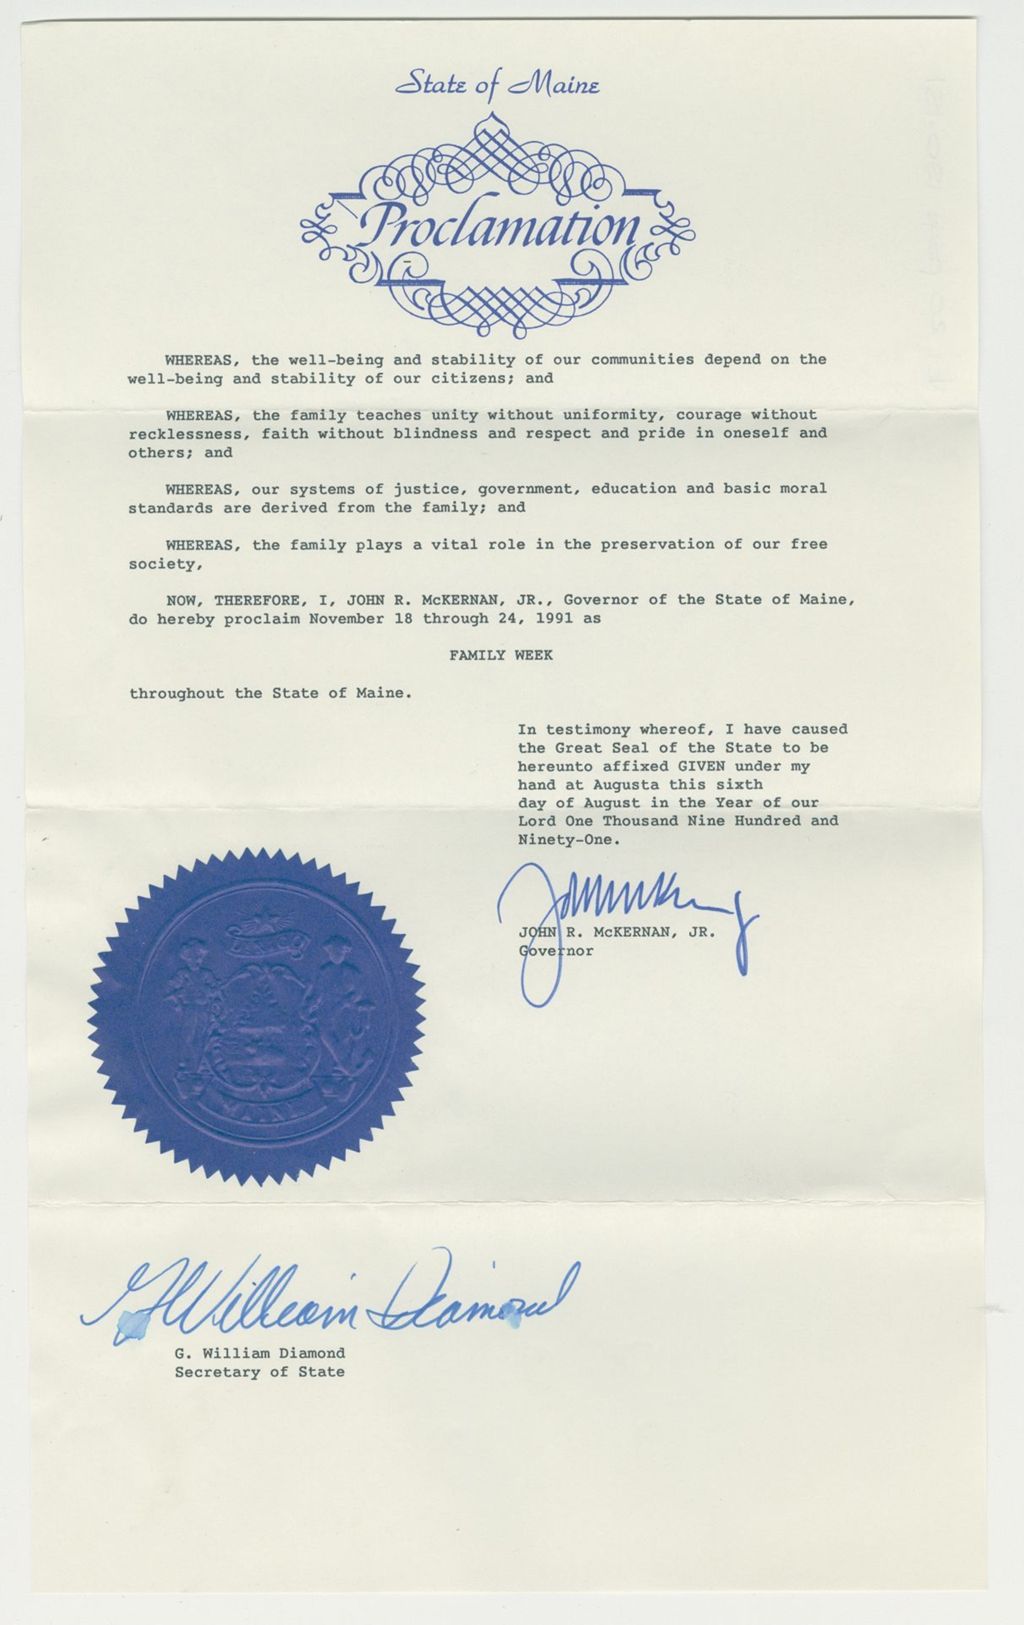 State of Maine
Proclamation
WHEREAS, the well-being and stability of our communities depend on the
well-being and stability of our citizens; and
WHEREAS, the family teaches unity without uniformity, courage without
recklessness, faith without blindness and respect and pride in oneself and
others; and
WHEREAS, our systems of justice, government, education and basic moral
standards are derived from the family; and
WHEREAS, the family plays a vital role in the preservation of our free
society,
NOW, THEREFORE, I, JOHN R. McKERNAN, JR., Governor of the State of Maine,
do hereby proclaim November 18 through 24, 1991 as
FAMILY WEEK
throughout the State of Maine.
In testimony whereof, I have caused
the Great Seal of the State to be
hereunto affixed GIVEN under my
hand at Augusta this sixth
day of August in the Year of our
Lord One Thousand Nine Hundred and
Ninety-One.
JOHN R. McKERNAN, JR.
Governor
MAINE
G William Diamond
G. William Diamond
Secretary of State